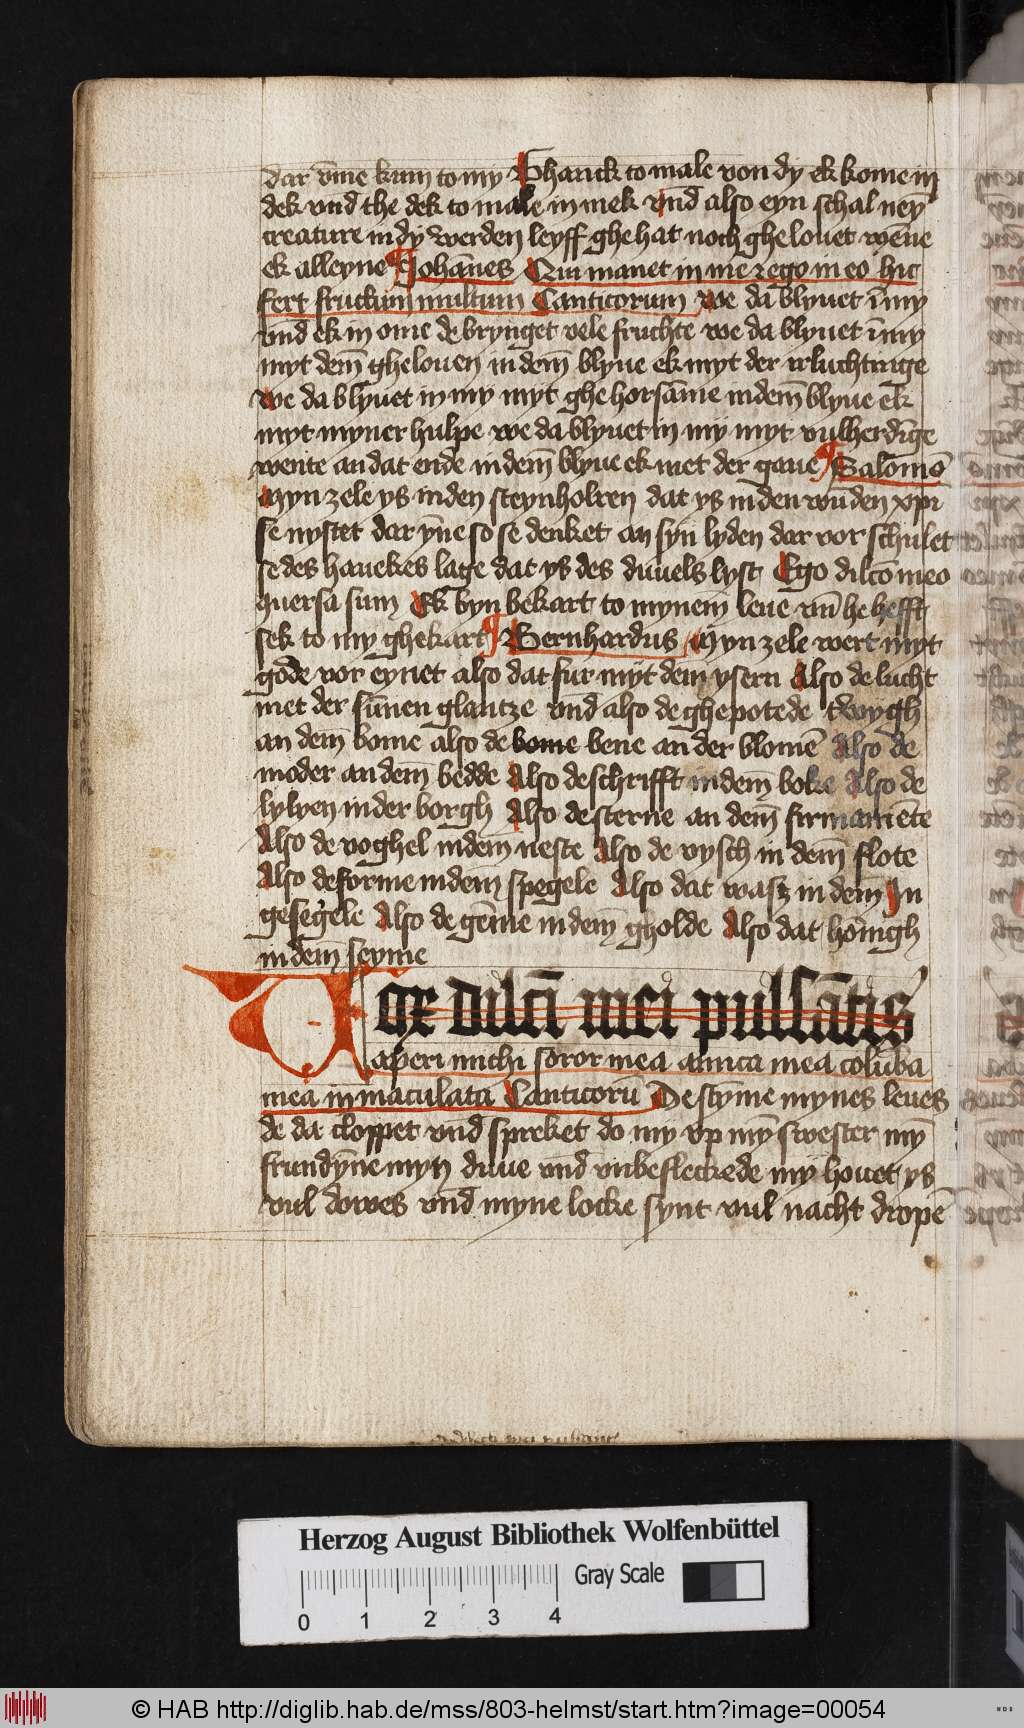 dar v̄me kum to my Ghanck to male von dy ek kome in
dek vnd the dek to male in mek vnd also eyn schal ney
creature in dy werden leyff ghe hat noch ghe louet wēne
ek alleyne Johānes Qui manet in me z ego in eo hic
fert fructum multum Canticorum We da blyuet ī my
vnd ek in ome de brynget vele fruchte we da blyuet ī my
myt dem̄ ghelouen in dem̄ blyue ek myt der irluchtinge
we da blyuet in my myt ghe horsāme in dem̄ blyue ek
myt myner hulpe we da blyuet in my myt vulherdīge
wente an dat ende in dem̄ blyue ek met der gaue Salomō
Myn zele ys in den steynholren dat ys in den wūden xpi
se nystet dar ȳne so se denket an syn lyden dar vor schulet
se des hauekes lage dat ys des duuels lyst Ego dilc̄o meo
quersa sum Ek byn bekart to mynem̄ leue vn̄ he hefft
sek to my ghekart Bernhardus Myn zele wert myt
gode vor eynet also dat fur myt dem ysern Also de lucht
met der sūnen glantze vnd also de ghepotede twygh
an dem̄ bome also de bome bene an der blomē Also de
moder an dem̄ bedde Also de schrifft in dem̄ boke Also de
lylyen in der borgh Also de sterne an dem̄ firmamēte
Also de voghel in dem̄ neste Also de vysch in dem̄ flote
Also de forme in dem̄ spegele Also dat wasz in dem̄ In
gesegele Also de gēme in dem̄ gholde Also dat hōnigh
in dem̄ seyme
Vox dilc̄i mei pulsātis
aperi michi soror mea amica mea colūba
mea inmaculata Canticorū De stȳme mynes leues
de da cloppet vnd spreket do my vp mȳ swester mȳ
frundȳne myn duue vnd vnbefleckede my houet ys
vul dowes vnd myne locke synt vul nacht dropē
Herzog August Bibliothek Wolfenbüttel
Gray Scale
0 1 2 3 4
© HAB http://diglib.hab.de/mss/803-helmst/start.htm?image=00054